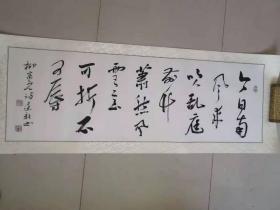 今日南
风来
吹乱庭
前竹
萧然风
雪意
可折不
可辱